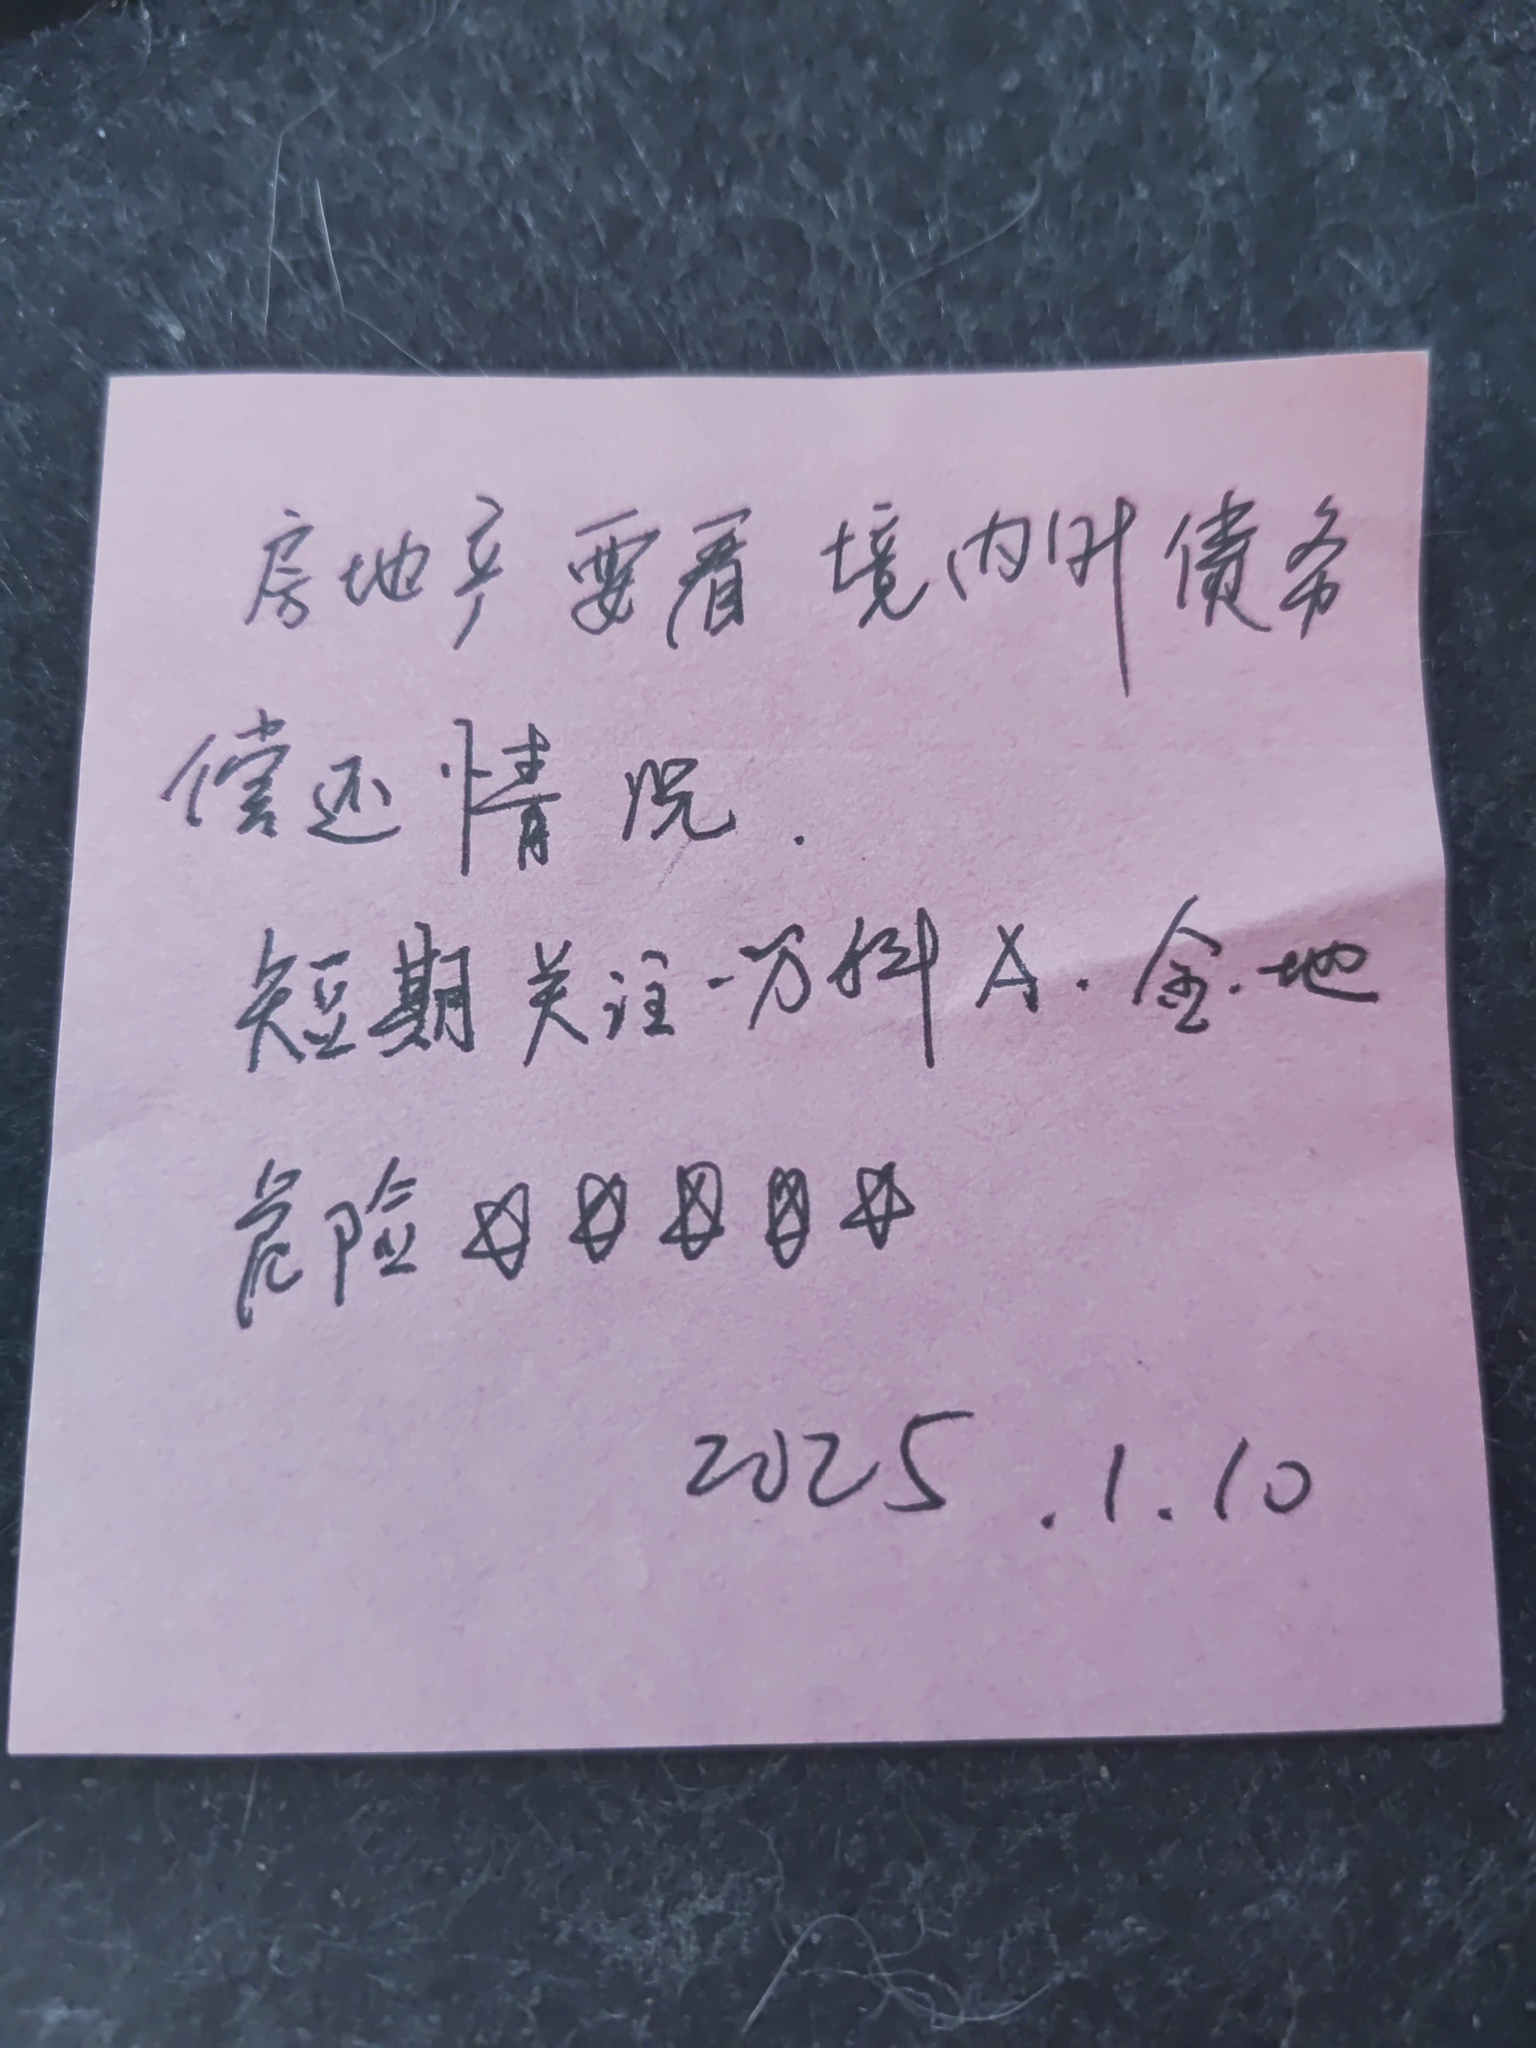 房地产要看境内外债务
偿还情况.
短期关注-万科A.金地
危险☆☆☆☆☆
2025.1.10